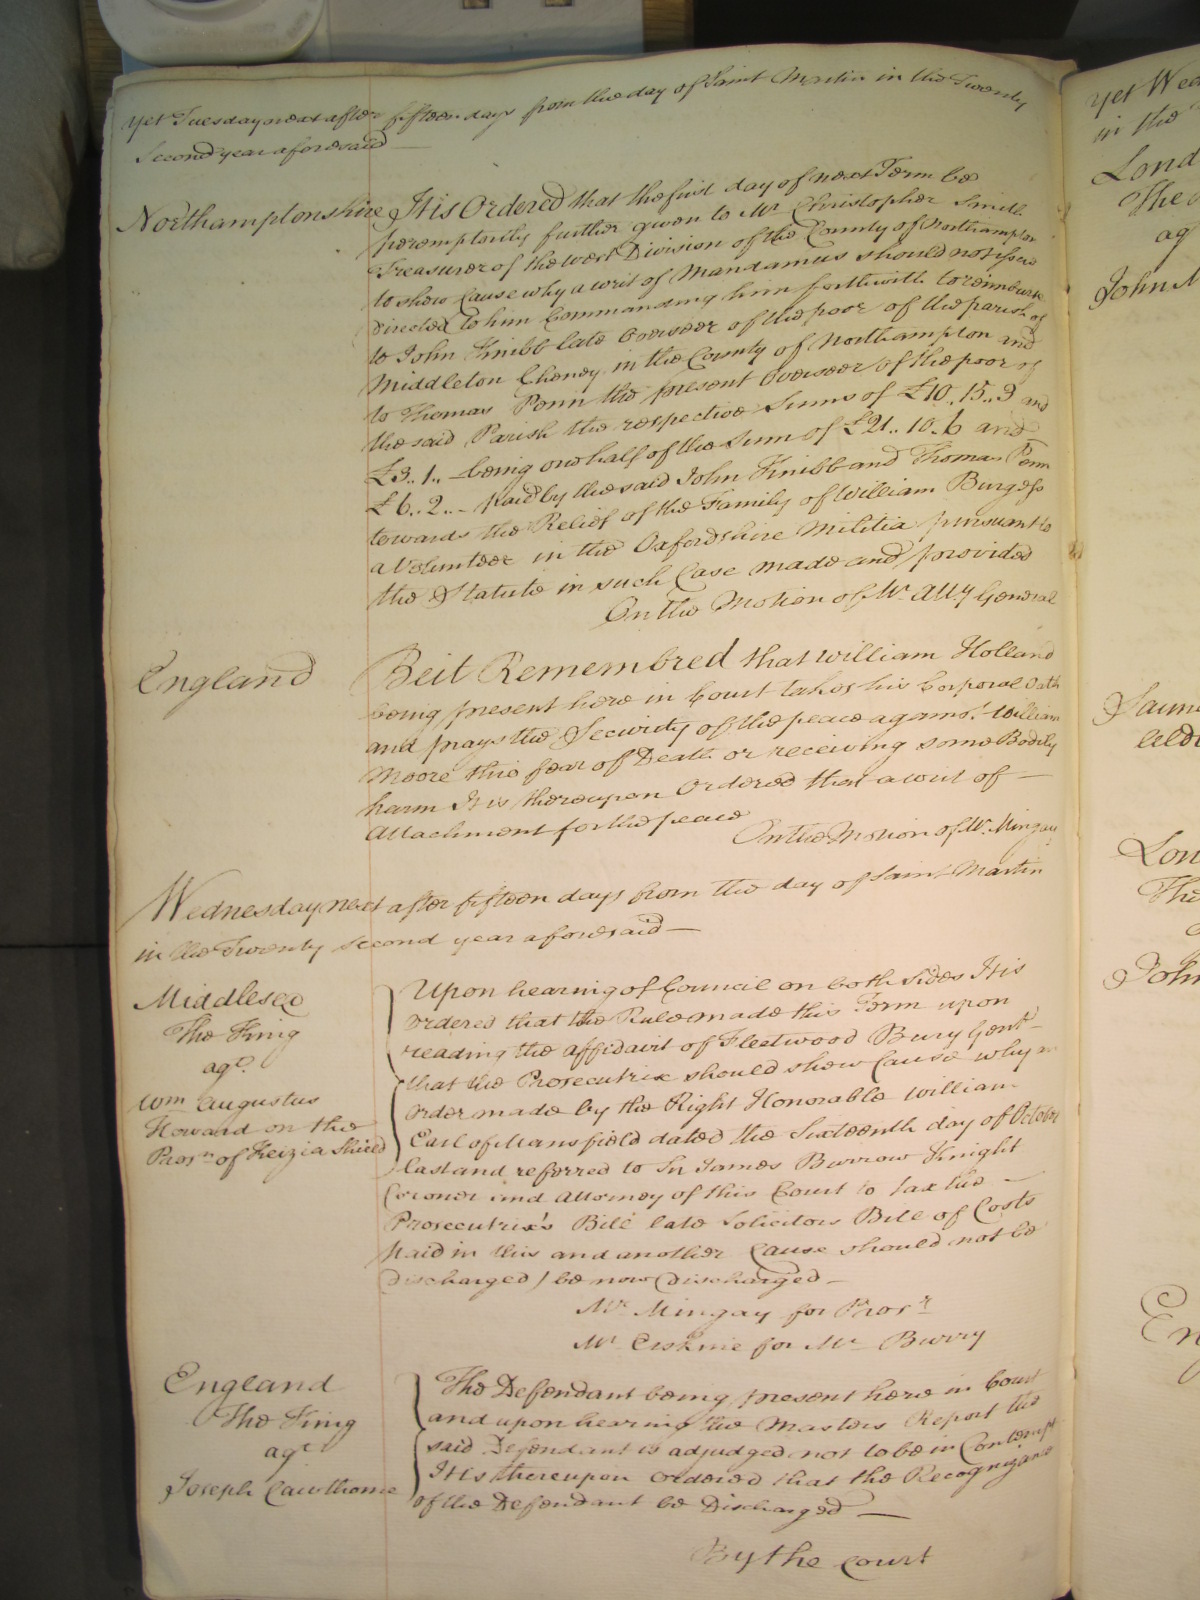 Yet Tuesday next after fifteen days from the day of Saint Martin in the Twenty
Second year aforesaid
Northamptonshire It is Ordered that the first day of next Term be
peremptorily further given to Mr. Christopher Smith
Treasurer of the West Division of the County of Northampton
to shew Cause why a writ of Mandamus should not issue
directed to him Commanding him forthwith to reimburse
to John Knibb late Overseer of the poor of the parish of
Middleton Cheney in the County of Northampton and
to Thomas Penn the present Overseer of the poor of
the said Parish the respective Sums of £10..15..3 and
£3..1..- being one half of the Sum of £21..10..6 and
£6..2..- paid by the said John Knibb and Thomas Penn
towards the Relief of the Family of William Burgess
a Volunteer in the Oxfordshire Militia pursuant to
the Statute in such Case made and provided
On the Motion of Mr. Atty General
England Be it Remembred that William Holland
being present here in Court takes his Corporal Oath
and prays the Security of the peace against William
Moore thro fear of Death or receiving some Bodily
harm It is thereupon Ordered that a writ of
Attachment for the peace
On the Motion of Mr. Mingay
Wednesday next after fifteen days from the day of Saint Martin
in the Twenty second year aforesaid
Middlesex
The King
agt.
Wm Augustus
Howard on the
Prosn of Keizia Shield
Upon hearing of Council on both Sides It is
ordered that the Rule made this Term upon
reading the affidavit of Fleetwood Bury Gent
that the Prosecutrix should shew Cause why an
order made by the Right Honorable William
Earl of Mansfield dated the Sixteenth day of October
last and referred to Sir James Burrow Knight
Coroner and Attorney of this Court to tax the
Prosecutrix's Bill late Solicitors Bill of Costs
paid in this and another Cause should not be
discharged / be now discharged
Mr. Mingay for Prosr
Mr. Erskine for Mr. Burry
England
The King
agt
Joseph Cawthorne
The Defendant being present here in Court
and upon hearing the Masters Report the
said Defendant is adjudged not to be in Contempt
It is thereupon ordered that the Recognizance
of the Defendant be Discharged
By the Court
yet Wed
in the
Lond
The
ag
John M
Lon
The
John
En